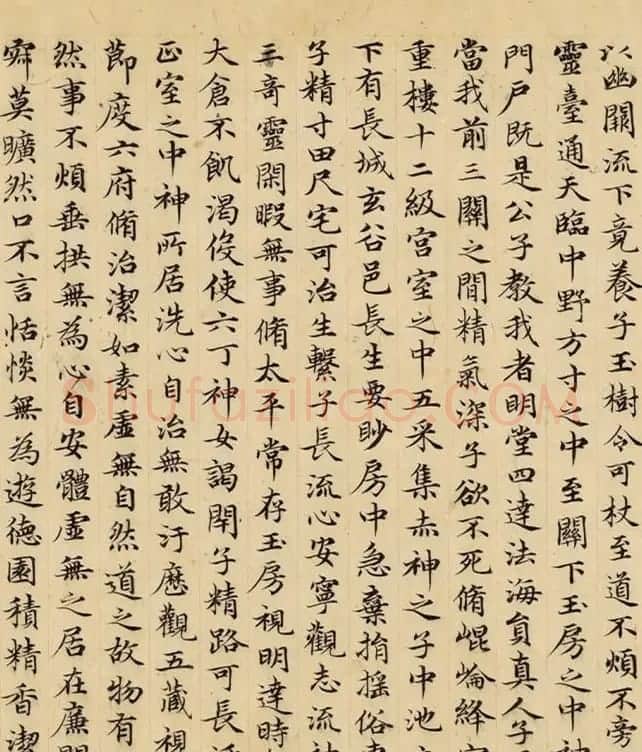 以幽關流下竟養子玉樹令可杖至道不煩不旁
靈臺通天臨中野方寸之中至關下玉房之中神
門戶既是公子教我者明堂四達法海負真人子
當我前三關之間精氣深子欲不死脩崐崘絳
重樓十二級宮室之中五采集赤神之子中池
下有長城玄谷邑長生要眇房中急棄捐搖俗
子精寸田尺宅可治生繫子長流心安寧觀志流
三奇靈閑暇無事脩太平常存玉房視明達時
大倉不飢渴役使六丁神女謁閇子精路可長
正室之中神所居洗心自治無敢汙歷觀五藏視
節度六府脩治潔如素虛無自然道之故物有
然事不煩垂拱無為心自安體虛無之居在廉
莫曠然口不言恬惔無為遊德園積精香潔
Shufaziliao.COM